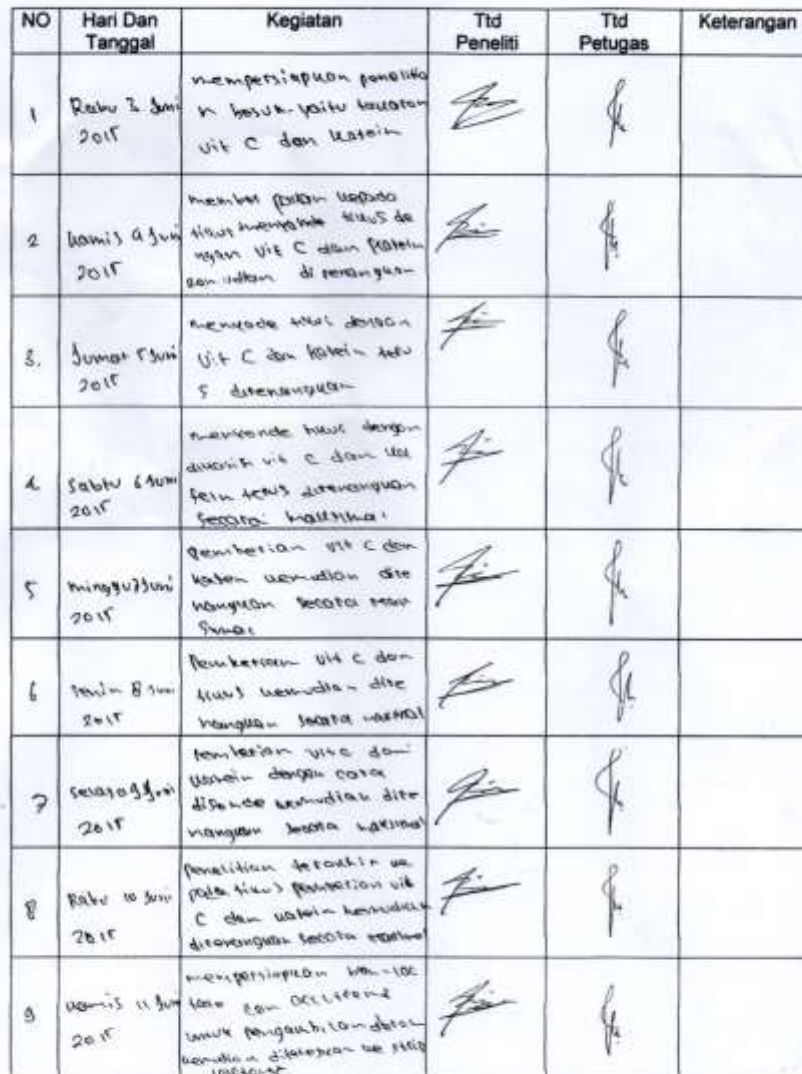 NO Hari Dan Tanggal Kegiatan Ttd Peneliti Ttd Petugas Keterangan
1 Rabu 3 Juni 2015
mempersiapkan penelitia
n besok yaitu takaran
vit C dan kafein
2 Kamis 4 Juni 2015
pakan kepada
tikus menyonde tikus de
ngan vit C dan
kemudian direnangkan
3. Jumat 5 Juni 2015
menyode tikus dengan
Vit C dan kafein teru
s direnangkan
4 Sabtu 6 Juni 2015
menyonde tikus dengan
vit C dan ka
fein terus direnangkan
secara maksimal
5 minggu 7 Juni 2015
Pemberian vit C dan
kafein kemudian dire
nangkan secara maksi
mal
6 Senin 8 Juni 2015
Pemberian vit C dan
tikus kemudian dire
nangkan secara maksimal
7 Selasa 9 Juni 2015
Pemberian vit C dan
kafein dengan cara
disonde kemudian dire
nangkan secara maksimal
8 Rabu 10 Juni 2015
Penelitian terakhir ke
pada tikus pemberian vit
C dan kafein kemudian
direnangkan secara maksimal
9 Kamis 11 Juni 2015
mempersiapkan
dan
untuk pengambilan darah
kemudian diteteskan ke strip